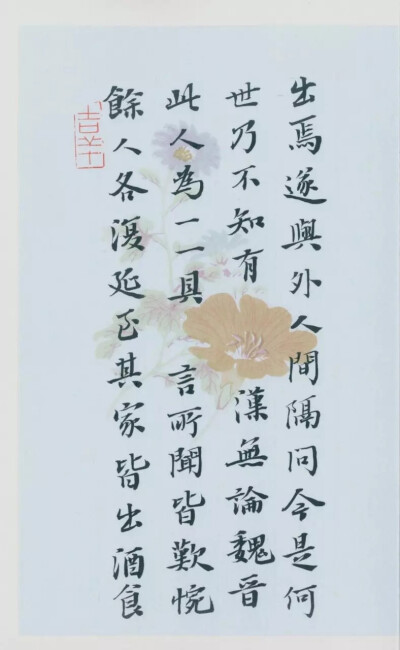 出焉遂與外人間隔問今是何
世乃不知有漢無論魏晋
此人為一一具言所聞皆歎惋
餘人各復延至其家皆出酒食
吉羊